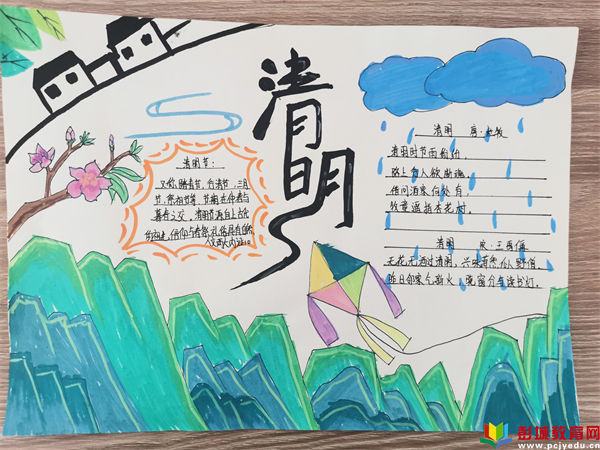 清明
清明节:
又称踏青节、行清节、三月
节、祭祖节等,节期在仲春与
暮春之交。清明节源自上古代
清明 唐·杜牧
清明时节雨纷纷,
路上行人欲断魂。
借问酒家何处有
牧童遥指杏花村。
清明 宋·王禹偁
无花无酒过清明,兴味萧然似野僧。
昨日邻家乞新火,晓窗分与读书灯。
彭城教育网
www.pcjyedu.cn